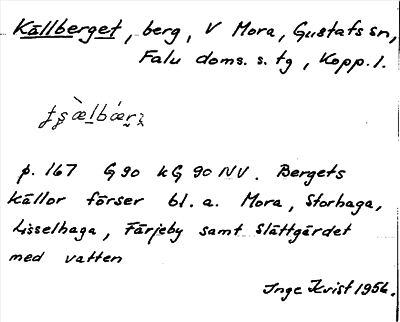 Källberget, berg, V Mora, Gustafs sn,
Falu doms. s. tg, Kopp. l.
p. 167 G 90 k G 90 NV. Bergets
källor förser bl. a. Mora, Storhaga,
Lisselhaga, Färjeby samt Slättgärdet
med vatten
Inge Kvist 1954.